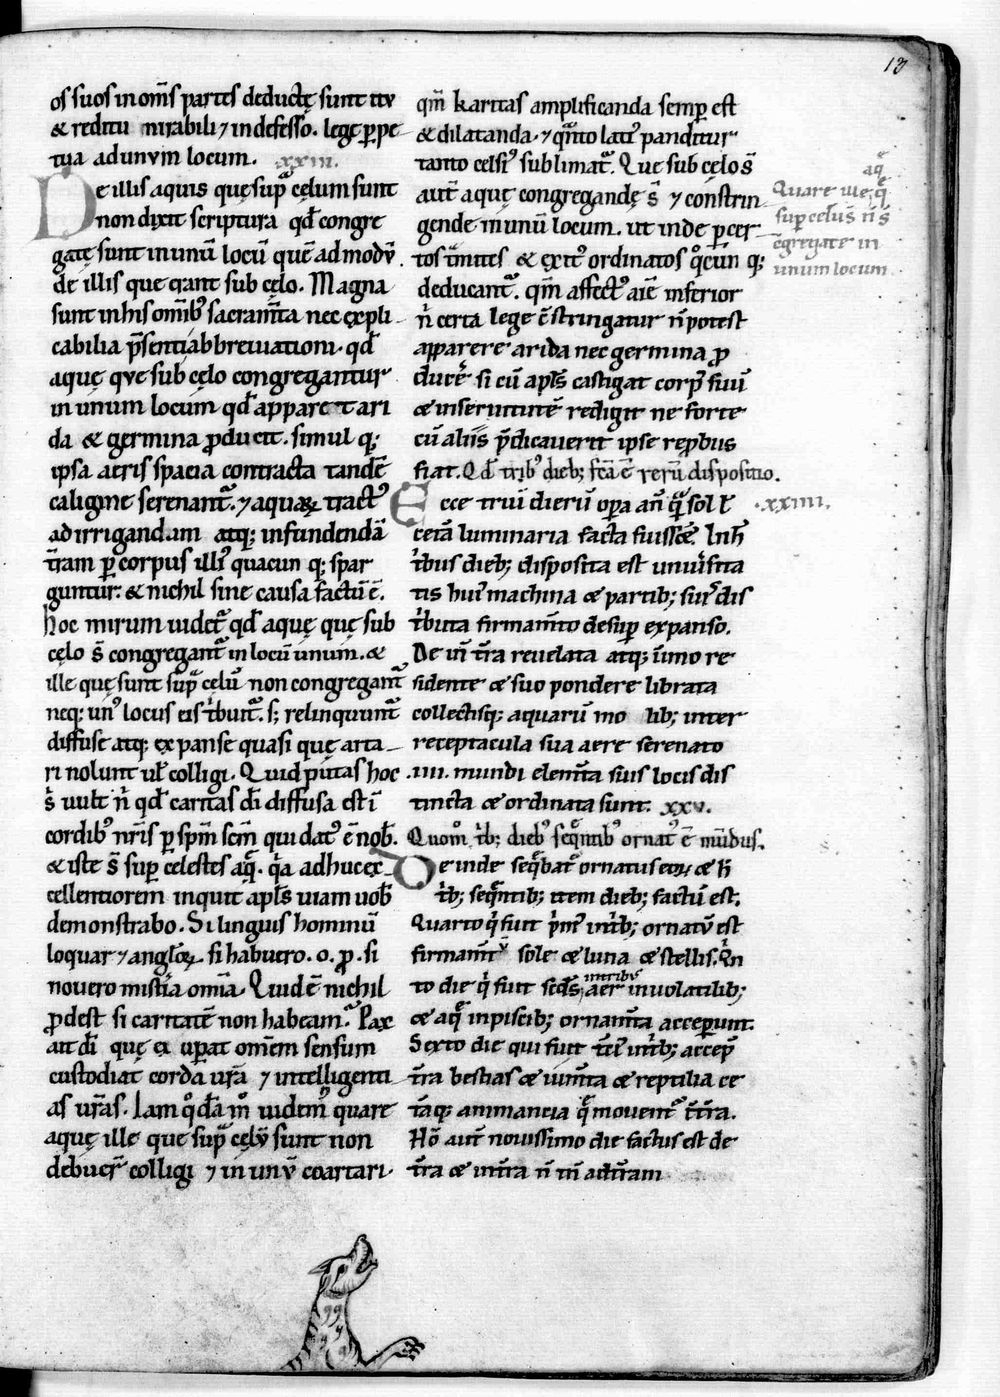 13
os suos in om̄s partes deductę sunt itv
& reditu mirabili ⁊ indefesso. lege ꝑpe-
tua ad unvm locum. xxiii.
De illis aquis quę supͣ cęlum sunt
non dixit scriptura qđ congre
gatę sunt in unū locū quē ad modv̄
de illis que erant sub cęlo. Magna
sunt in his omībꝰ sacram̄ta nec expli
cabilia p̄senti abbreviationi. qđ
aquę qve sub cęlo congregantur
in unum locum qđ appareret ari
da & germina ꝓducit. simul qꝫ
ipsa aeris spacia contracta tandē
caligine serenant᷑. ⁊ aquaꝝ tractꝰ
ad irrigandam atqꝫ infundendā
t̄ram ꝑ corpus illiꝰ quacun qꝫ spar
guntur. & nichil sine causa factū ē.
hoc mirum uidet᷑ qđ aquę quę sub
cęlo s̄ congregant᷑ in locū unum. &
ille quę sunt supͣ celū non congregant᷑
neqꝫ unꝰ locus eis t̾buit᷑. sꝫ relinquunt᷑
diffuse atqꝫ expanse quasi quę arta-
ri nolunt ul̄ colligi. Quid putas hoc
s̄ uult n̄ qđ caritas dī diffusa est ī
cordibꝰ nr̄is ꝑ spm̄ scm̄ qui datꝰ ē nob̄.
& iste s̄ super celestes aq̄. qͥa adhuc ex-
cellentiorem inquit apl̄s uiam uob̄
demonstrabo. Si linguis hominū
loquar ⁊ angl̄oꝝ si habuero. o. ꝓ. si
nouero mist̾ia omīa. Quid ē nichil
ꝓdest si caritatē non habeam. Pax
ait dī quę ex uperat omēm sensum
custodiat corda ur̄a ⁊ intelligenti-
as ur̄as. Iam qͦdā m̊ uidem̾ quare
aquę ille que supͣ cęlv̄ sunt non
debuer̄ colligi ⁊ in unv̄ coartari.
qm̄ karitas amplificanda semꝑ est
& dilatanda. ⁊ qͣnto latiꝰ panditur
tanto celsiꝰ sublimat᷑. Que sub celo s̄
aut̄ aquę congregandę s̄ ⁊ constrin-
gende in unū locum. ut inde ꝑ cer-
tos t̾mites & exitꝰ ordinatos qͦcūn qꝫ
deducant᷑. qm̄ affectꝰ aīe inferior
n̄ certa lege c̄stringatur n̄ potest
apparere arida nec germina ꝓ
ducēr si cū apl̄s castigat corpꝰ suū
& in seruitutē redigit ne forte
cū aliis p̄dicauerit ipse reꝓbus
fiat. Qđ tribꝰ diebꝫ fcā ē rerū dispositio.
Ecce triū dierū oꝑa an̄ qͣ sol l̄
cet̾a luminaria facta fuissēt. In h̄
t̾bus diebꝫ disposita est uniu̾sita
tis huiꝰ machina & partibꝫ suis dis
t̾buta firmam̄to desuꝑ expanso.
De in̄ t̄ra reuelata atqꝫ īmo re
sidente & suo pondere librata
collectisqꝫ aquarū mo libꝫ inter
receptacula sua aere serenato
.iiii. mundi elem̄ta suis locis dis
tincta & ordinata sunt. xxv.
Quom̊ t̾bꝫ diebꝰ seq̄ntibꝰ ornatꝰ ē mūdus.
Deinde seq̄bat᷑ ornatus eoꝝ & h̄
t̾bꝫ seq̄ntibꝫ item diebꝫ factū est.
Quarto qͥ fuit pͥmꝰ int̾bꝫ ornatv̄ est
firmam̄tv̄ sole & luna & stellis. Qn
to die qͥ fuit sc̄ds int̾ibꝰ aer in uolatilibꝫ
& aq̄ in piscibꝫ ornam̄ta acceꝑunt.
Sexto die qui fuit t̄ci int̾bꝫ accep̄
t̄ra bestias & ium̄ta & reptilia ce
t̾aqꝫ animancia qͥ mouent᷑ ī t̄ra.
Hō aut̄ nouissimo die factus est de
t̄ra & int̄ra n̄ tn̄ ad t̄ram
aq̄
Quare
sup celus n̄ s̄
c̄gregate in
unum locum
.xxiiii.